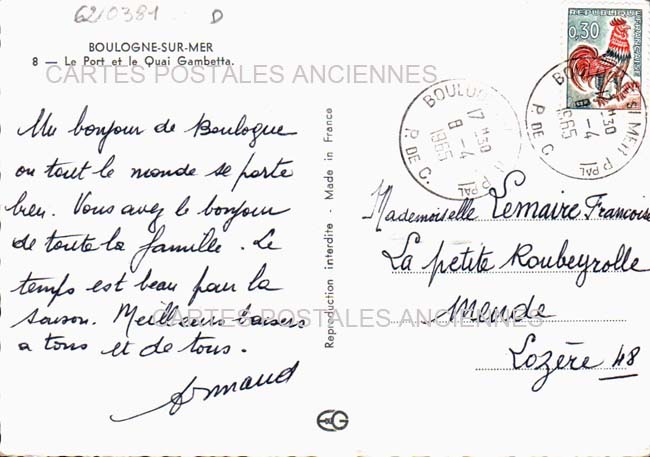 62/0381 D
BOULOGNE-SUR-MER
8 — Le Port et le Quai Gambetta.
CARTES POSTALES ANCIENNES
Un bonjour de Boulogne
ou tout le monde se porte
bien. Vous avez le bonjour
de toute la famille. Le
temps est beau pour la
saison. Meilleurs baisers
a tous et de tous.
Armand
CARTES POSTALES ANCIENNES
Reproduction interdite - Made in France
EG
REPUBLIQUE FRANÇAISE
0,30
BOULOGNE S/ MER P PAL
17 H30
8 -4
1965
P. DE C.
BOULOGNE S/ MER P PAL
17 H30
8 -4
1965
P. DE C.
Mademoiselle Lemaire Francoise
La petite Roubeyrolle
Mende
Lozère 48